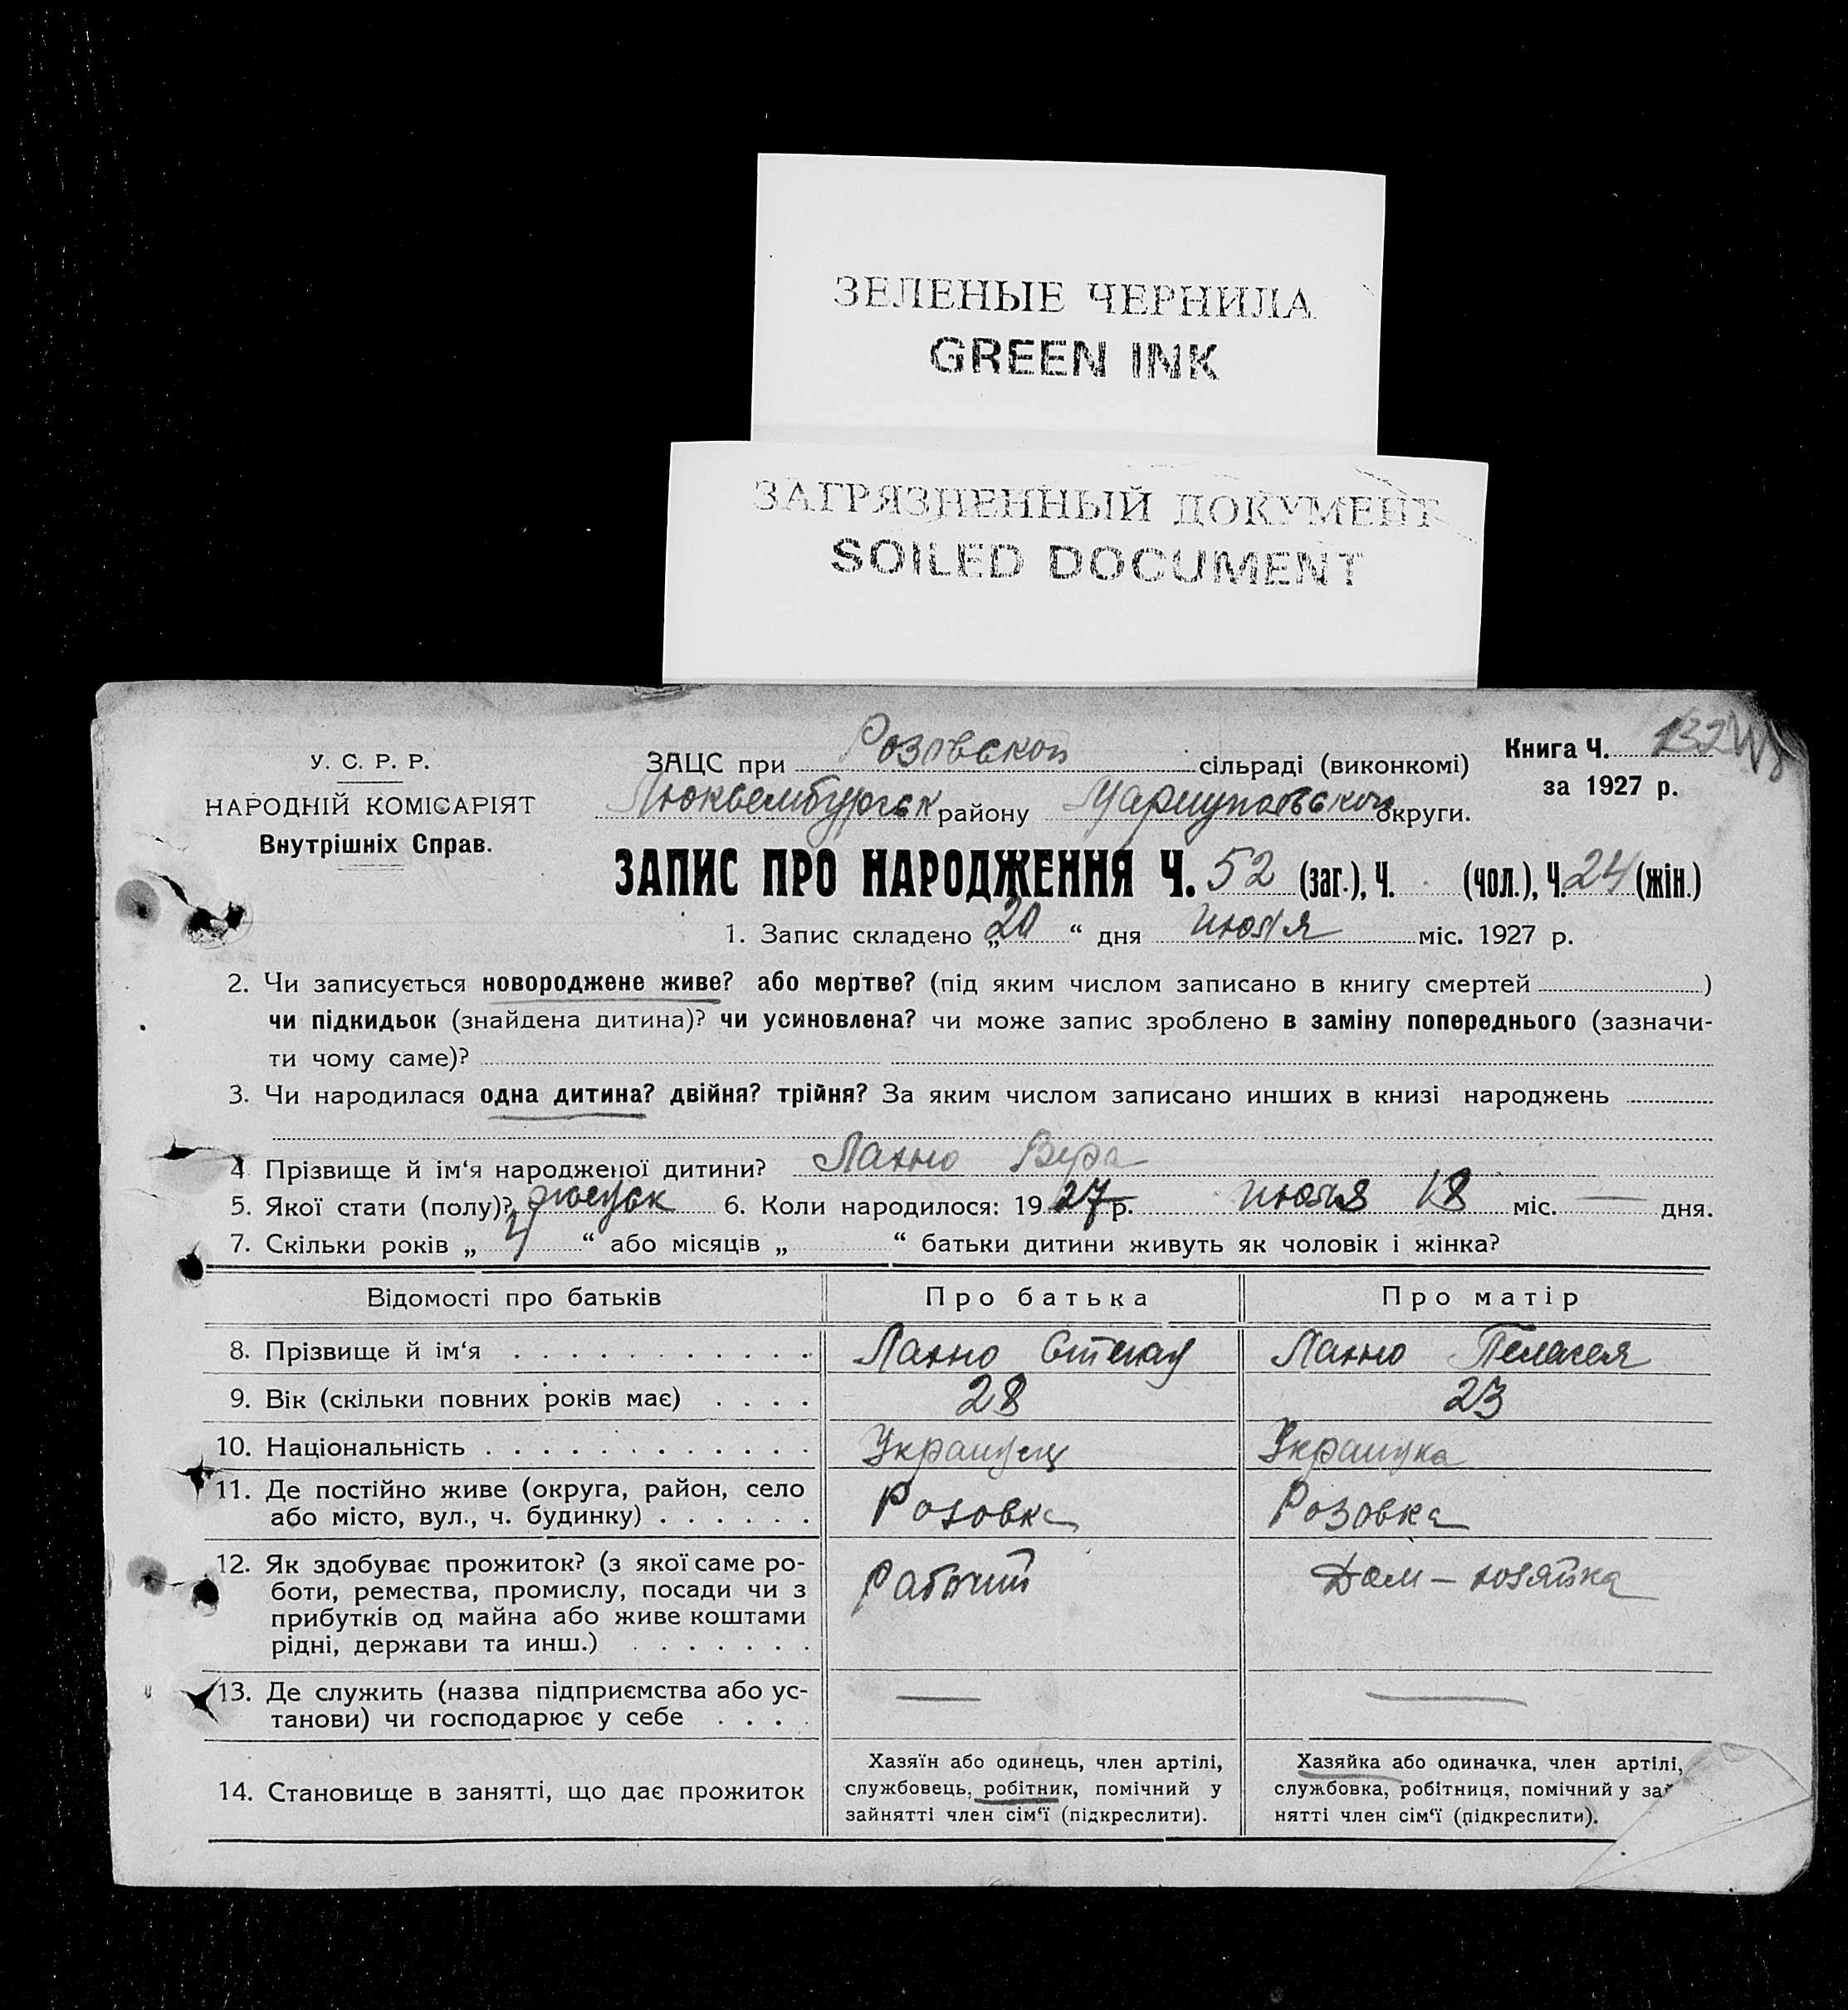 ЗЕЛЕНЫЕ ЧЕРНИЛА
GREEN INK
ЗАГРЯЗНЕННЫЙ ДОКУМЕНТ
SOILED DOCUMENT
У. С. Р. Р.
НАРОДНІЙ КОМІСАРІЯТ
Внутрішніх Справ.
ЗАЦС при Розовской сільраді (виконкомі)
Люксембургск району Мариупольской округи.
Книга Ч. 132
за 1927 р.
ЗАПИС ПРО НАРОДЖЕННЯ Ч. 52 (заг.), Ч. (чол.), Ч. 24 (жін.)
1. Запис складено „20“ дня июля міс. 1927 р.
2. Чи записується новороджене живе? або мертве? (під яким числом записано в книгу смертей )
чи підкидьок (знайдена дитина)? чи усиновлена? чи може запис зроблено в заміну попереднього (зазначи-
ти чому саме)?
3. Чи народилася одна дитина? двійня? трійня? За яким числом записано инших в книзі народжень
4 Прізвище й ім‘я народженої дитини? Лахно Вера
5. Якої стати (полу)? 6. Коли народилося: 1927 р. июля 18 міс. — дня.
7. Скільки років „ 4 “ або місяців „ “ батьки дитини живуть як чоловік і жінка?
Відомості про батьків Про батька Про матір
8. Прізвище й ім‘я Лахно Степан Лахно Пелагея
9. Вік (скільки повних років має) 28 23
10. Національність Украинец Украинка
11. Де постійно живе (округа, район, село
або місто, вул., ч. будинку) Розовка Розовка
12. Як здобуває прожиток? (з якої саме ро-
боти, ремества, промислу, посади чи з
прибутків од майна або живе коштами
рідні, держави та инш.) Рабочий Дом-хозяйка
13. Де служить (назва підприємства або ус-
танови) чи господарює у себе — —
14. Становище в занятті, що дає прожиток
Хазяїн або одинець, член артілі,
службовець, робітник, помічний у
зайнятті член сім‘ї (підкреслити).
Хазяйка або одиначка, член артілі,
службовка, робітниця, помічний у зай
нятті член сім‘ї (підкреслити).